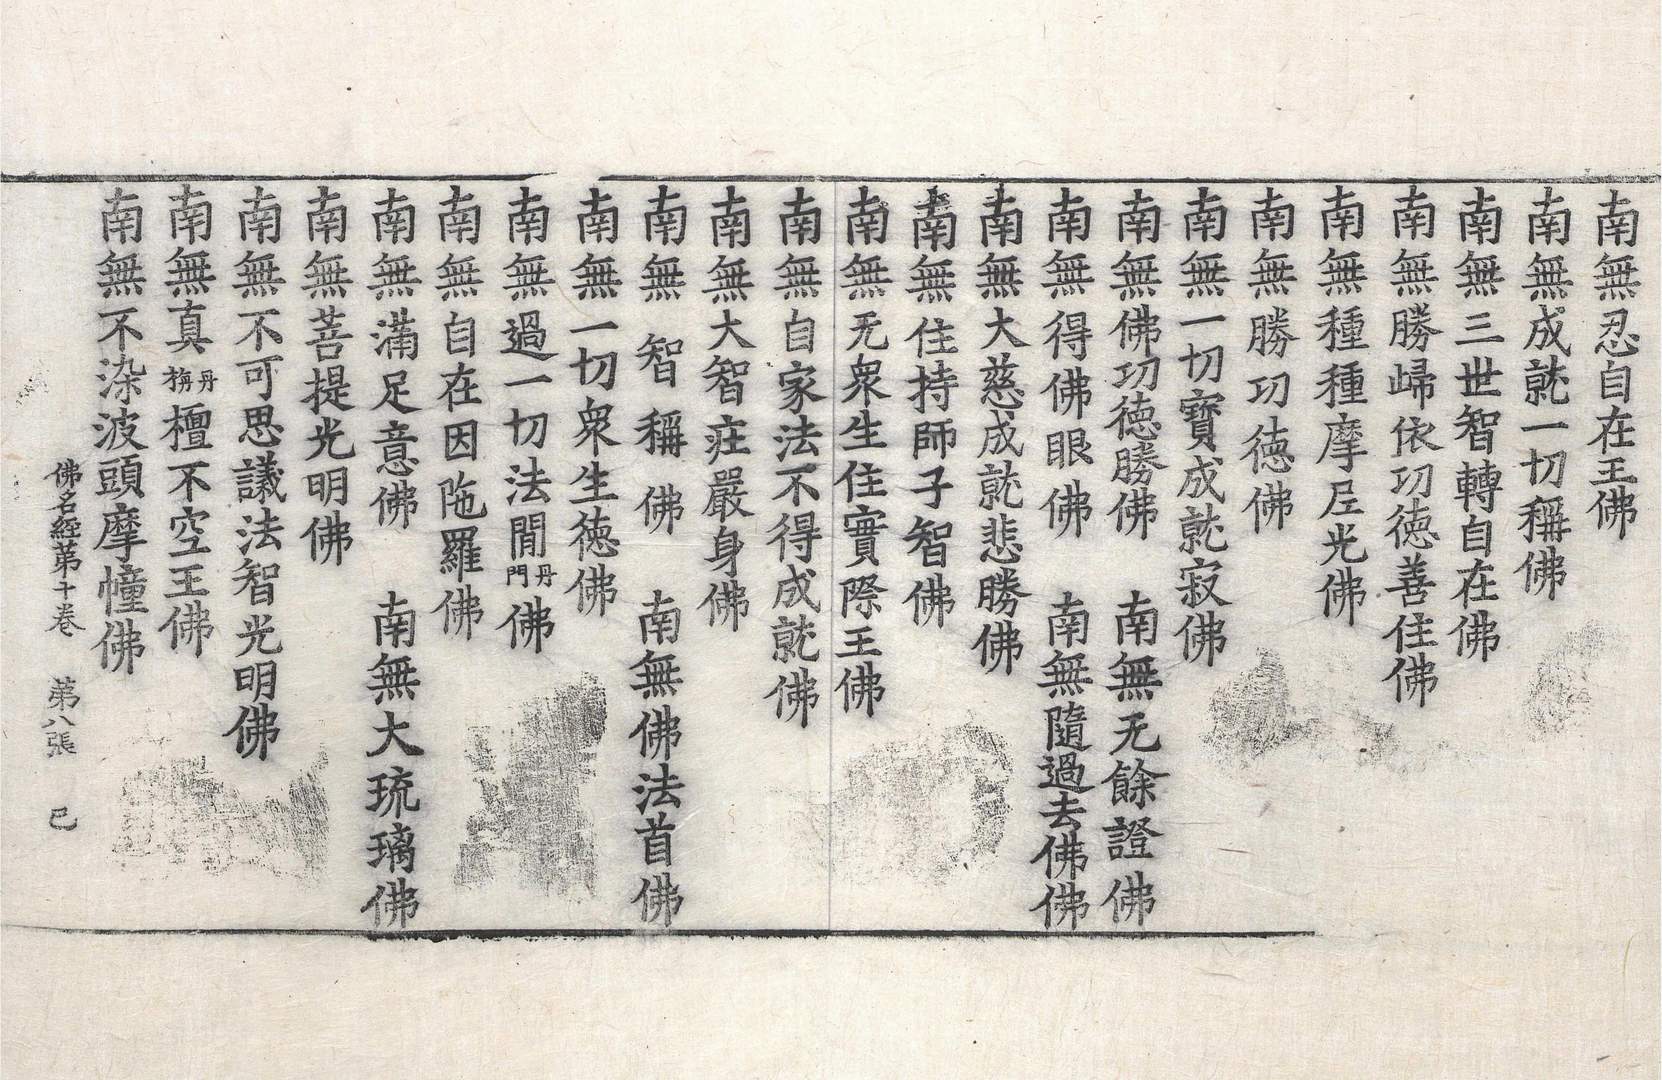 南無忍自在王佛
南無成就一切稱佛
南無三世智轉自在佛
南無勝歸依功德善住佛
南無種種摩尼光佛
南無勝功德佛
南無一切寶成就寂佛
南無佛功德勝佛 南無无餘證佛
南無得佛眼佛 南無隨過去佛佛
南無大慈成就悲勝佛
南無住持師子智佛
南無无衆生住實際王佛
南無自家法不得成就佛
南無大智莊嚴身佛
南無智稱佛 南無佛法首佛
南無一切衆生德佛
南無過一切法間丹門佛
南無自在因陁羅佛
南無滿足意佛 南無大琉璃佛
南無菩提光明佛
南無不可思議法智光明佛
南無真丹栴檀不空王佛
南無不染波頭摩幢佛
佛名經第十卷 第八張 己